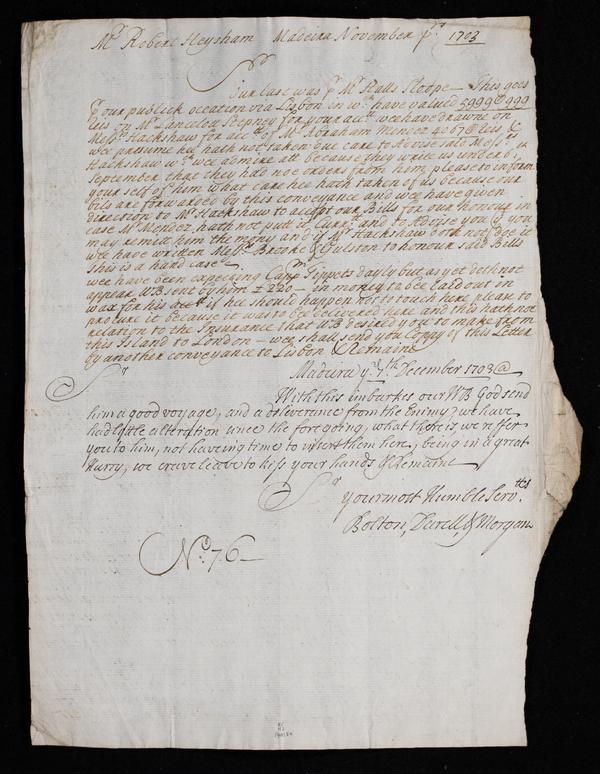 Mr. Robert Heysham Madeira November pr. 1703
Sr
Our last was p Mr. Halls Sloope — This goes
p our publick ocation via Lisbon in wch. have valued 5999@999
leis on Mr. Lancelot Stepney for your acct. wee have drawne on
Messrs. Hackshaw for acct. of Mr. Abraham Mendez 4067@ leis, &
wee presume hee hath not taken due care to Advise said Messrs.
Hackshaw wch. wee admire att because they write us under
September that they had noe orders from him, please to inform
your self of him what care hee hath taken of us because our
bils are forwarded by this conveyance and wee have given
direction to Mr. Hackshaw to accept our Bills for our honour in
case Mr. Mendez, hath not putt it Curr. and to Advise you yt you
may remit him the mony and if Mr. Hackshaw doth not doe it
wee have written Messrs. Brooke & Gulston to honour said Bills
This is a hard case —
wee have been expecting Capn. Tippets dayly but as yet doth not
appear WB sent by him £ 220 — in money to be laid out in
wax for his acct if hee should happen not to touch here please to
procure it because it was to be delivered here and this hath not
relation to the Insurance that WB desired you to make from
this Island to London — wee shall send you Coppy of this Letter
by another conveyance to Lisbon & Remaine
Sr
Madera ye. 7th. December 1703@
With this imbarkes our WB God send
him a good voyage, and a deliverance from the Enimy, we have
had little alteration since the foregoing, what there is, we reffer
you to him, not haveing time to insert them here, being in a great
Hurry, we crave leave to kiss your hands & Remaine
Sr
Your most Humble Servtts.
Bolton, Durell, & Morgan
No. 76 —